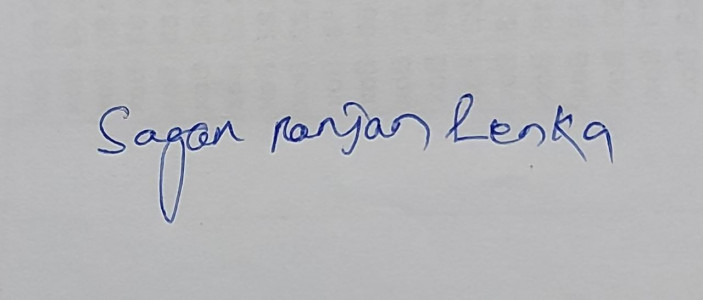 Sagar ranjan Lenka